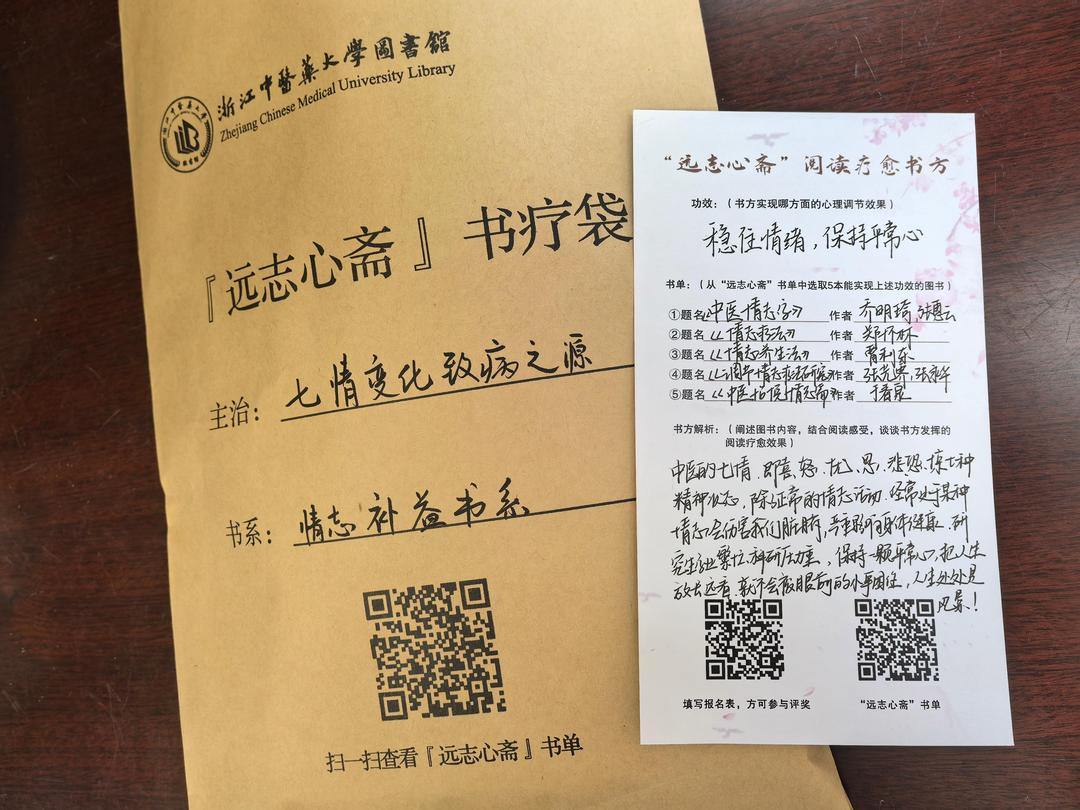 浙江中醫藥大學圖書館
Zhejiang Chinese Medical University Library
『远志心斋』 书疗袋
主治: 七情变化致病之源
书系: 情志补益书系
扫一扫查看『远志心斋』书单
“远志心斋”阅读疗愈书方
功效:(书方实现哪方面的心理调节效果)
稳住情绪,保持平常心
书单:(从“远志心斋”书单中选取5本能实现上述功效的图书)
①题名《中医情志学》 作者 乔明琦,张惠云
②题名《情志疗法》 作者 郑怀林
③题名《情志养生法》 作者 曹利东
④题名《调节情志 研究》作者 张光霁,张永华
⑤题名《中医 情志 》作者 于春泉
书方解析:(阐述图书内容,结合阅读感受,谈谈书方发挥的
阅读疗愈效果)
中医的七情,即喜、怒、忧、思、悲、恐、惊七种
精神状态,除了正常的情志活动,经常处于某种
情志会伤害我们脏腑,严重影响身体健康。研
究生学业繁忙,科研压力重,保持一颗平常心,把人生
放长远看,就不会被眼前的小事困住,人生处处是
风景!
填写报名表,方可参与评奖
“远志心斋”书单